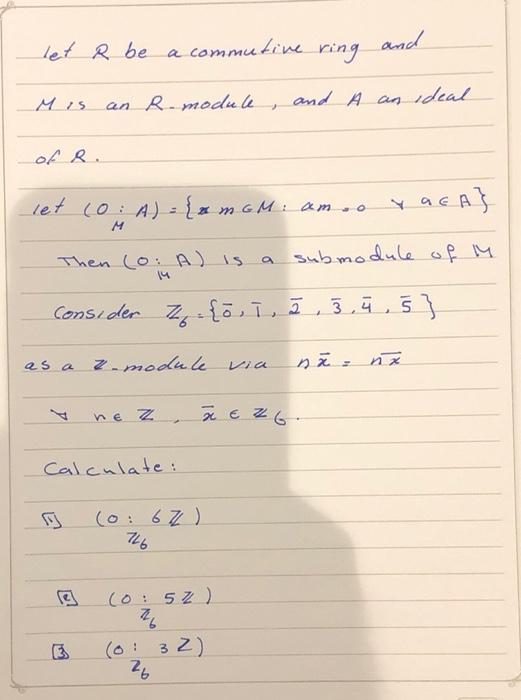 let R be a commutive ring and
M is an R-module, and A an ideal
of R.
let (0 :_M A) = {m ∈ M : am = 0 ∀ a ∈ A}
Then (0 :_M A) is a submodule of M
Consider Z_6 = {0̄, 1̄, 2̄, 3̄, 4̄, 5̄}
as a Z-module via n x̄ = n̅x̅
∀ n ∈ Z, x̄ ∈ Z_6.
Calculate:
[1] (0 :_{Z_6} 6Z)
[2] (0 :_{Z_6} 5Z)
[3] (0 :_{Z_6} 3Z)